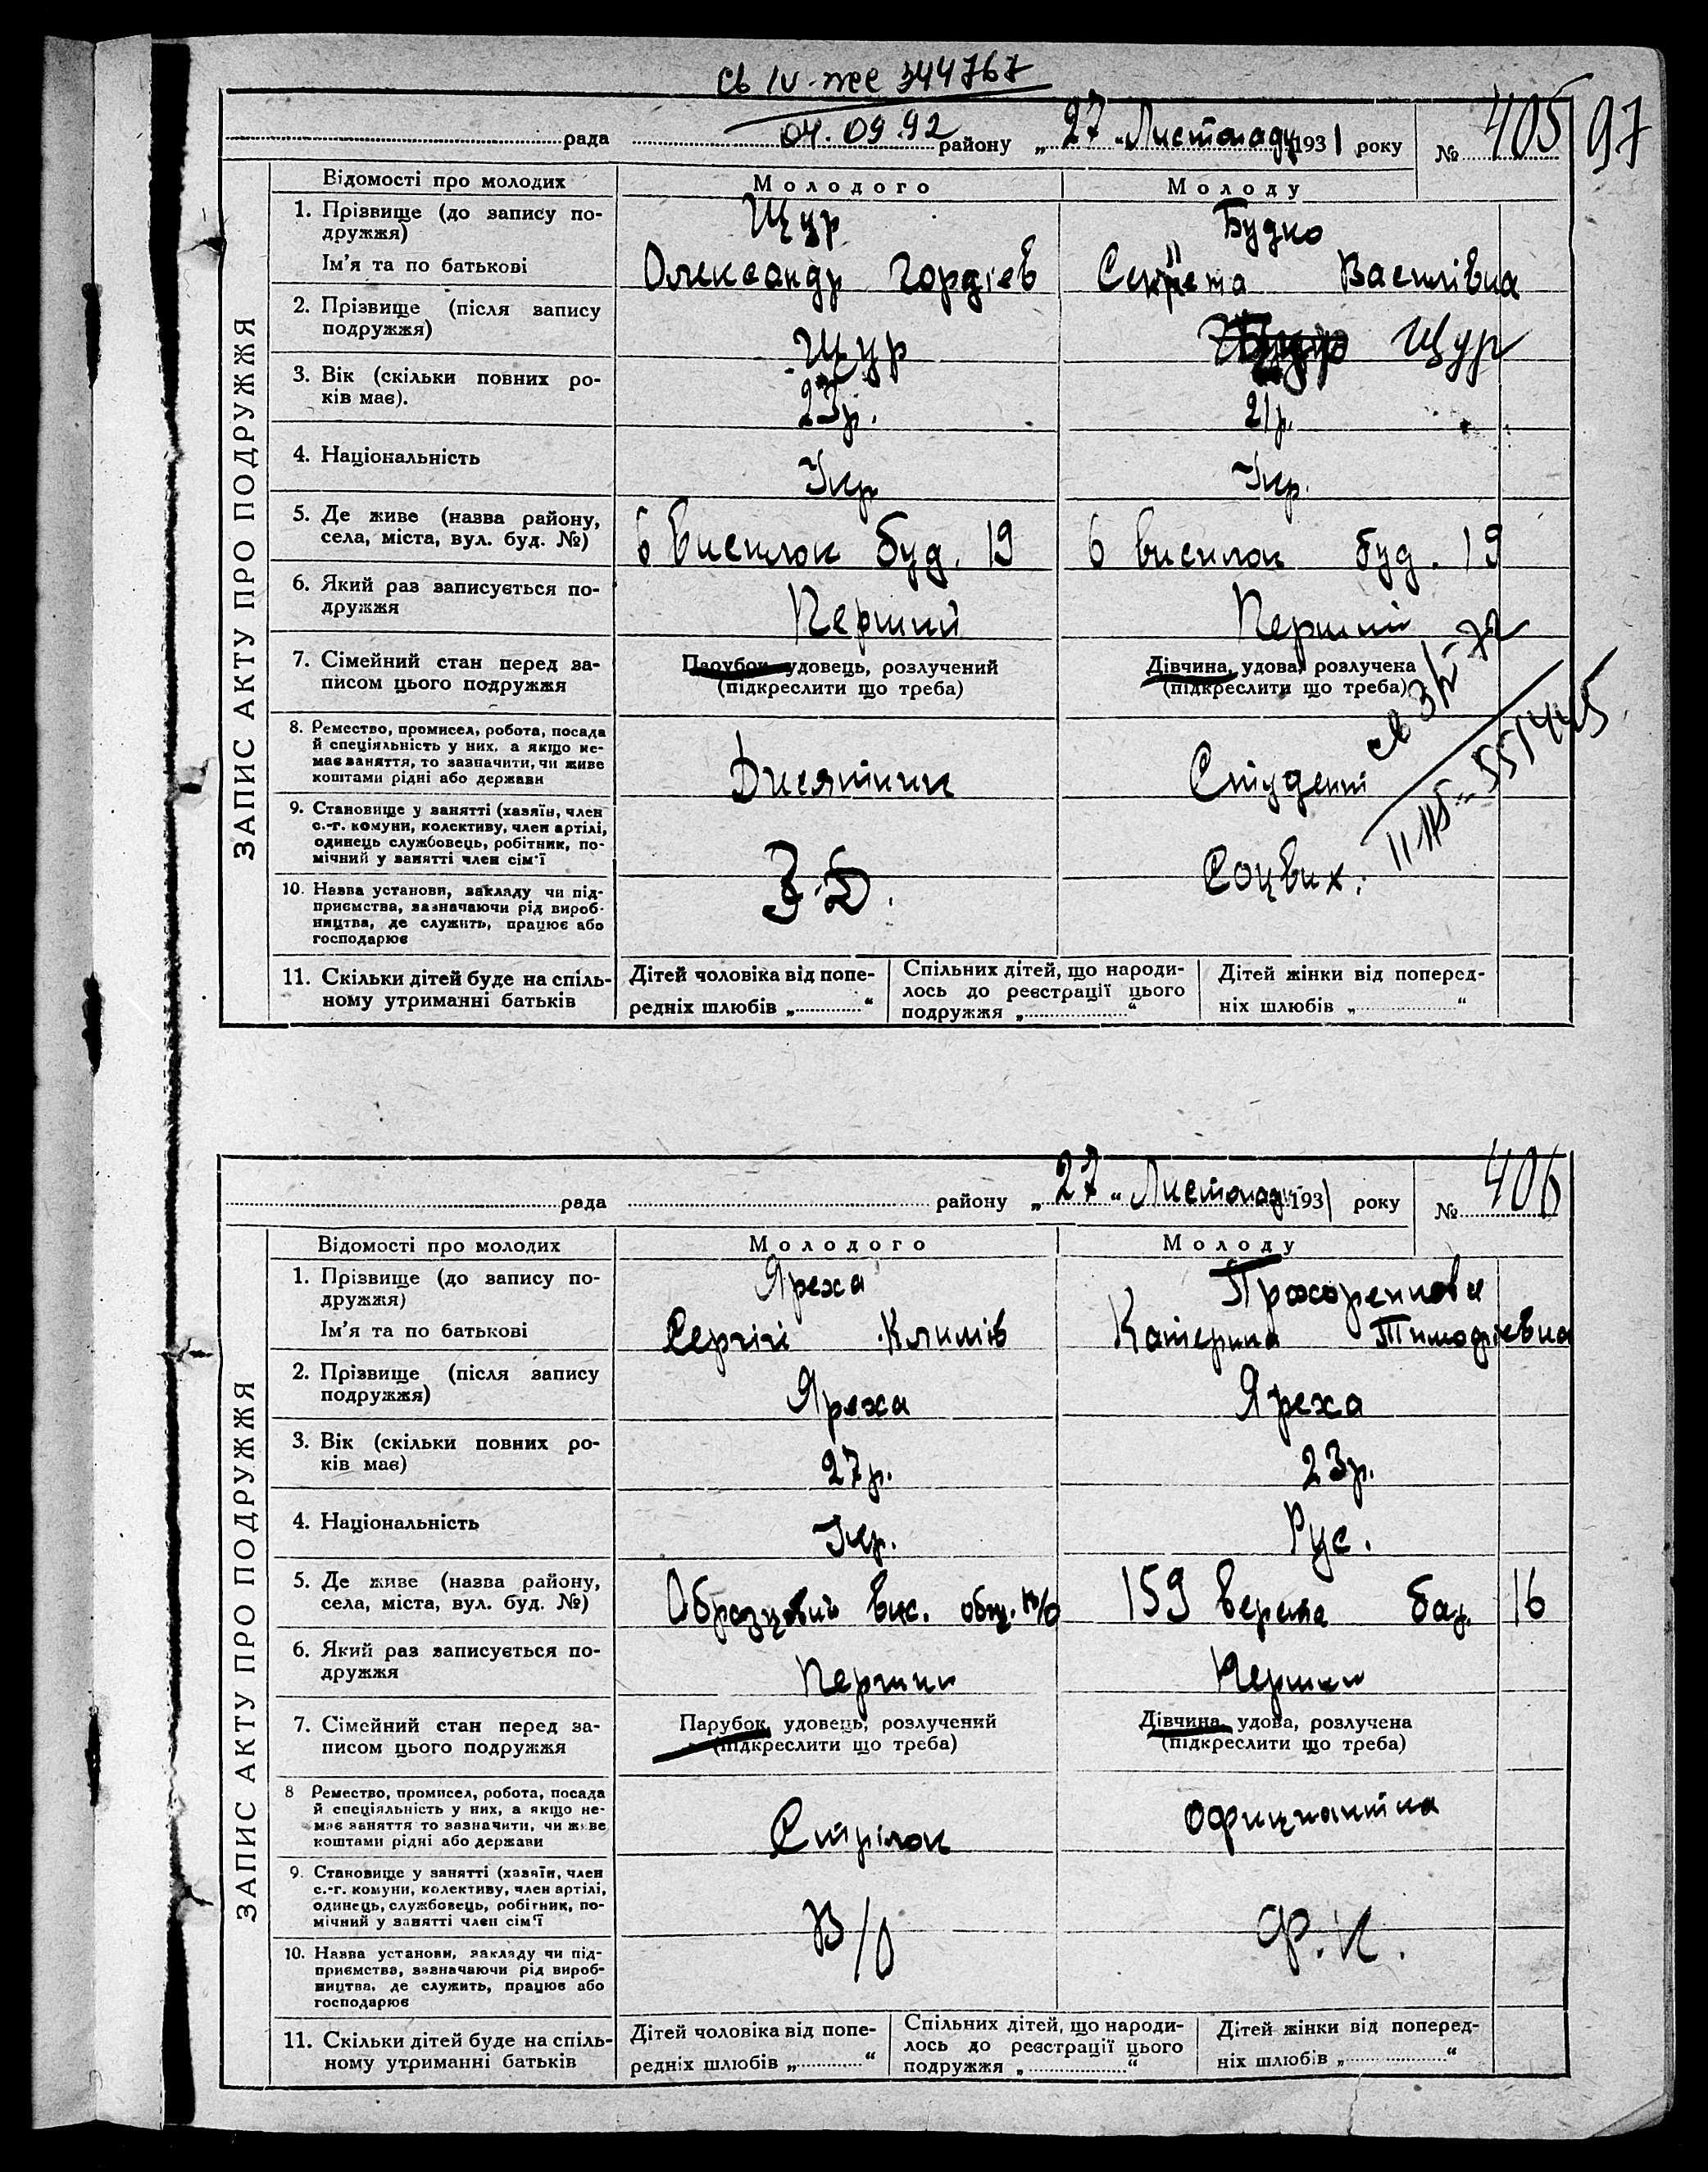 Св IV-жс 344767
04.09.92
рада району „27“ Листопаду 1931 року № 405 97
ЗАПИС АКТУ ПРО ПОДРУЖЖЯ
Відомості про молодих Молодого Молоду
1. Прізвище (до запису по-
дружжя) Щур Будко
Ім'я та по батькові Олександр Гордієв Василівна
2. Прізвище (після запису
подружжя) Щур Щур
3. Вік (скільки повних ро-
ків має). 23р. 21р.
4. Національність Укр Укр.
5. Де живе (назва району,
села, міста, вул. буд. №) 6 висилок буд. 19 6 висилок буд. 19
6. Який раз записується по-
дружжя Перший Перший
7. Сімейний стан перед за-
писом цього подружжя
Парубок, удовець, розлучений
(підкреслити що треба)
Дівчина, удова, розлучена
(підкреслити що треба)
8. Ремество, промисел, робота, посада
й спеціяльність у них, а якщо не-
має заняття, то зазначити, чи живе
коштами рідні або держави Студент
9. Становище у занятті (хазяїн, член
с.-г. комуни, колективу, член артілі,
одинець службовець, робітник, по-
мічний у занятті член сім'ї
З.Д. Соцвих.
10. Назва установи, закладу чи під-
приємства, зазначаючи рід вироб-
ництва, де служить, працює або
господарює
11. Скільки дітей буде на спіль-
ному утриманні батьків
Дітей чоловіка від попе-
редніх шлюбів „ “
Спільних дітей, що народи-
лось до реєстрації цього
подружжя „ “
Дітей жінки від поперед-
ніх шлюбів „ “
рада району „27“ Листопаду 1931 року № 406
ЗАПИС АКТУ ПРО ПОДРУЖЖЯ
Відомості про молодих Молодого Молоду
1. Прізвище (до запису по-
дружжя) Яреха Прохоренкова
Ім'я та по батькові Сергій Климів Катерина Тимофієвна
2. Прізвище (після запису
подружжя) Яреха Яреха
3. Вік (скільки повних ро-
ків має) 27р. 23р.
4. Національність Укр. Рус.
5. Де живе (назва району,
села, міста, вул. буд. №) Образцовий вис. 159 верста 16
6. Який раз записується по-
дружжя Перший Перший
7. Сімейний стан перед за-
писом цього подружжя
Парубок, удовець, розлучений
(підкреслити що треба)
Дівчина, удова, розлучена
(підкреслити що треба)
8 Ремество, промисел, робота, посада
й спеціяльність у них, а якщо не-
має заняття то зазначити, чи живе
коштами рідні або держави Стрілок Официантка
9. Становище у занятті (хазяїн, член
с.-г. комуни, колективу, член артілі,
одинець, службовець, робітник, по-
мічний у занятті член сім'ї
В/О Ф.К.
10. Назва установи, закладу чи під-
приємства, зазначаючи рід вироб-
ництва, де служить, працює або
господарює
11. Скільки дітей буде на спіль-
ному утриманні батьків
Дітей чоловіка від попе-
редніх шлюбів „ “
Спільних дітей, що народи-
лось до реєстрації цього
подружжя „ “
Дітей жінки від поперед-
ніх шлюбів „ “